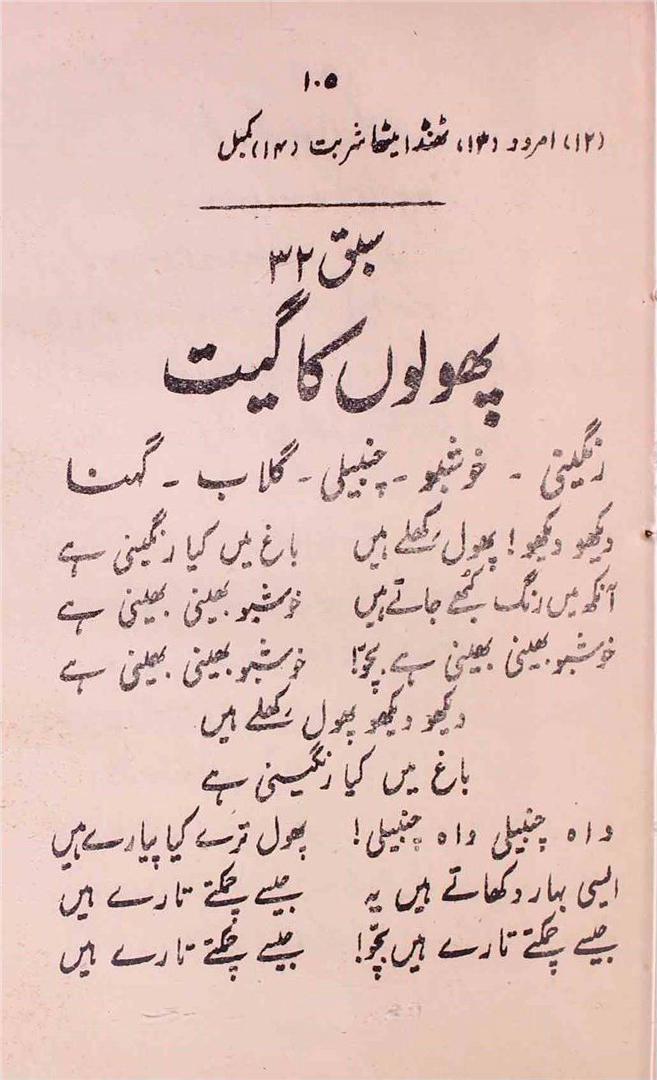 ۱۰۵
(۱۲)، امرود (۱۳)، ٹھنڈا میٹھا شربت (۱۴)، کمبل
سبق ۳۲
پھولوں کا گیت
رنگینی - خوشبو - چنبیلی - گلاب - گہنا
دیکھو دیکھو! پھول کھلے ہیں باغ میں کیا رنگینی ہے
آنکھ میں رنگ کُھبے جاتے ہیں خوشبو بھینی بھینی ہے
خوشبو بھینی بھینی ہے بچّو! خوشبو بھینی بھینی ہے
دیکھو دیکھو پھول کھلے ہیں
باغ میں کیا رنگینی ہے
واہ چنبیلی واہ چنبیلی! پھول ترے کیا پیارے ہیں
ایسی بہار دکھاتے ہیں یہ جیسے چمکتے تارے ہیں
جیسے چمکتے تارے ہیں بچّو! جیسے چمکتے تارے ہیں